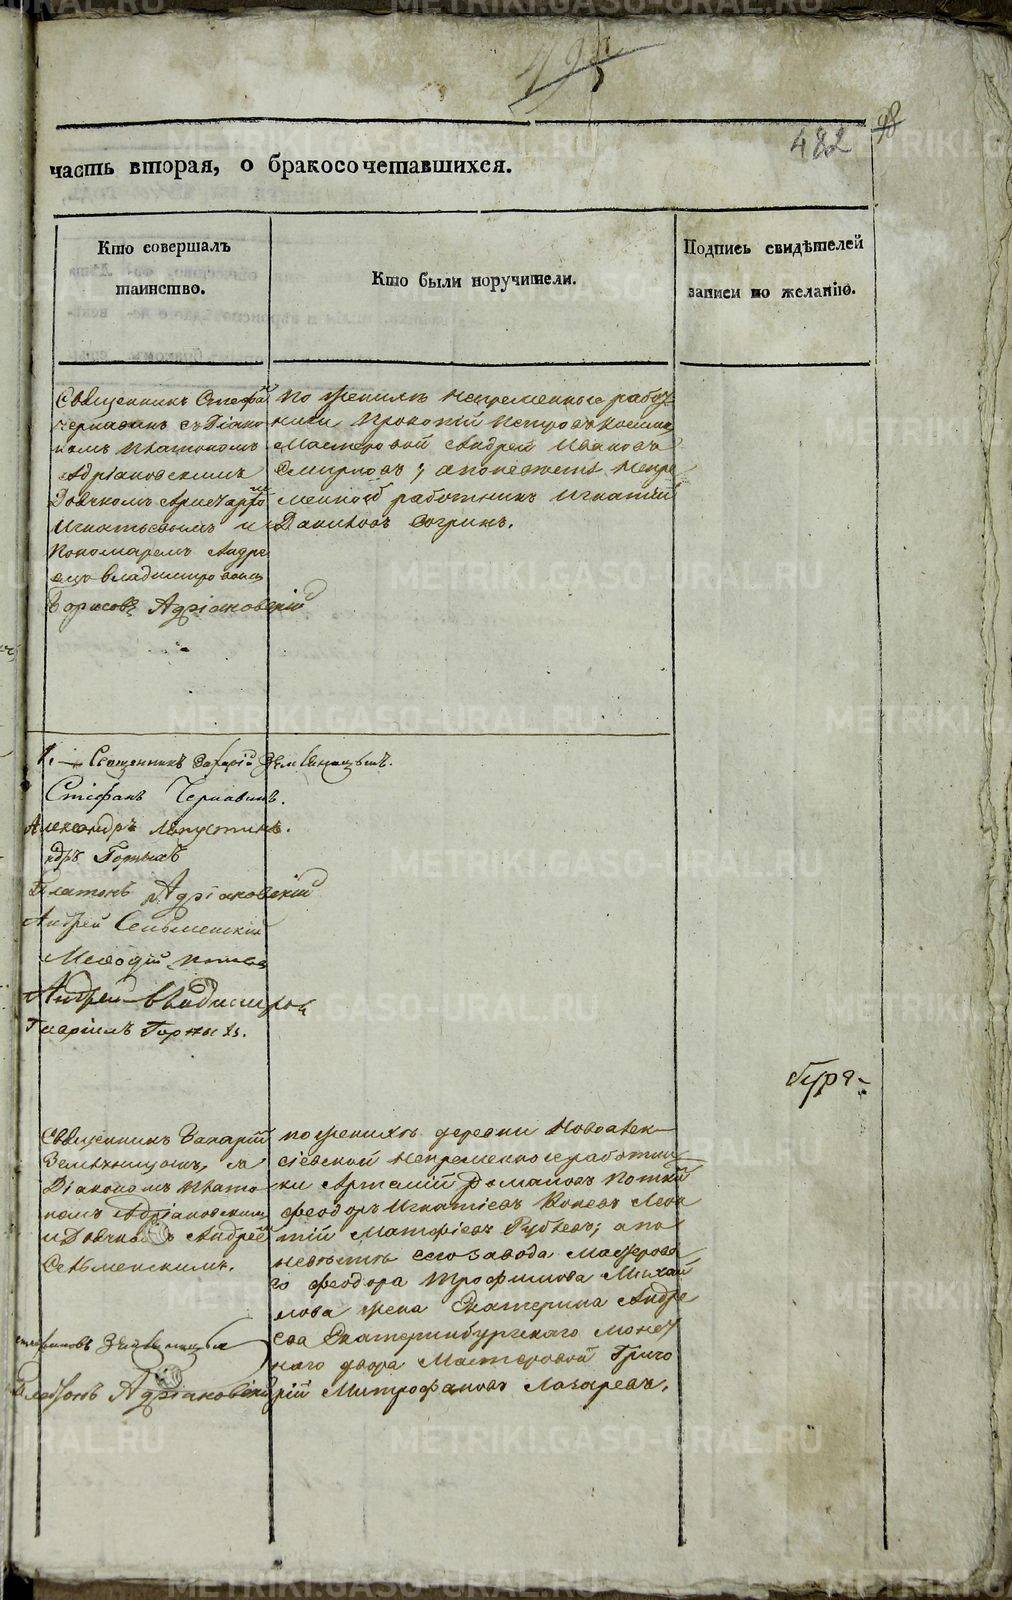 482
98
часть вторая, о бракосочетавшихся.
Кто совершалъ
таинство.
Кто были поручители.
Подпись свидѣтелей
записи по желанію.
Священникъ Стефанъ
Чернавинъ съ Діако
номъ Платономъ
Адріановскимъ
Дьячкомъ
Игнатьевымъ и
Пономаремъ Андре
емъ Владимировымъ
Адріановскій
по женихѣ непременные работ
ники Прокопій Петровъ
Мастеровой Андрей Ивановъ
Смирновъ; а по невѣстѣ непре
менной работникъ Игнатій
Даниловъ Согринъ.
Священникъ Захарій Земляницынъ.
Стефанъ Чернавинъ.
Александръ Лапустинъ.
Платонъ Адріановскій
Андрей Сельменскій
Меѳодій Поповъ
Андрей Владимиров
Гавріилъ Горныхъ.
Священникъ Захарій
Земляницынъ, съ
Діакономъ Плато
номъ Адріановскимъ
и Дьячкомъ Андреем
Сельменскимъ.
Платонъ Адріановскій
по женихѣ деревни Новоалек
сіевской непременные работни
ки Артемій
Феодоръ Игнатіевъ Коневъ Леон
тій Матфіевъ Рублевъ; а по
невѣстѣ сего завода Мастерова
го Феодора Трофимова Михай
лова жена Екатерина Андре
ева Екатеринбургскаго монет
наго двора Мастеровой Григо
рій Митрофановъ Лазаревъ.
METRIKI.GASO-URAL.RU